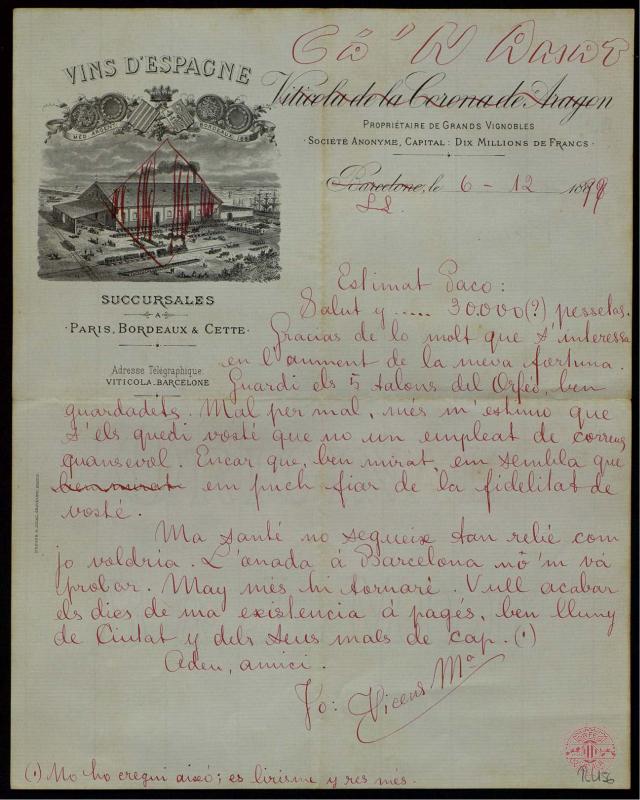 VINS D'ESPAGNE
MED. ARGENT
BORDEAUX 1882
Viticola de la Corona de Aragon
PROPRIÉTAIRE DE GRANDS VIGNOBLES
SOCIÉTÉ ANONYME, CAPITAL: DIX MILLIONS DE FRANCS
Barcelone, le 6 - 12 1899
SUCCURSALES
A
PARIS, BORDEAUX & CETTE
Adresse Télégraphique:
VITICOLA. BARCELONE
Estimat Paco:
Salut y ..... 30.000 (?) pessetas.
Gracias de lo molt que s'interessa
en l'aument de la meva fortuna.
Guardi els 5 talons del Orfeó, ben
guardadets. Mal per mal, més m'estimo que
s'els quedi vosté que no un empleat de correus
quansevol. Encar que, ben mirat, em sembla que
ben mirat em puch fiar de la fidelitat de
vosté.
Ma santé no segueix tan relié com
jo voldria. L'anada á Barcelona nô'm vá
probar. May més hi tornaré. Vull acabar
els dies de ma existencia á pagés, ben lluny
de Ciutat y dels seus mals de cap. (1)
Adeu, amici.
Jo: Vicens Mª
(1) No ho cregui aixó; es lirisme y res més.